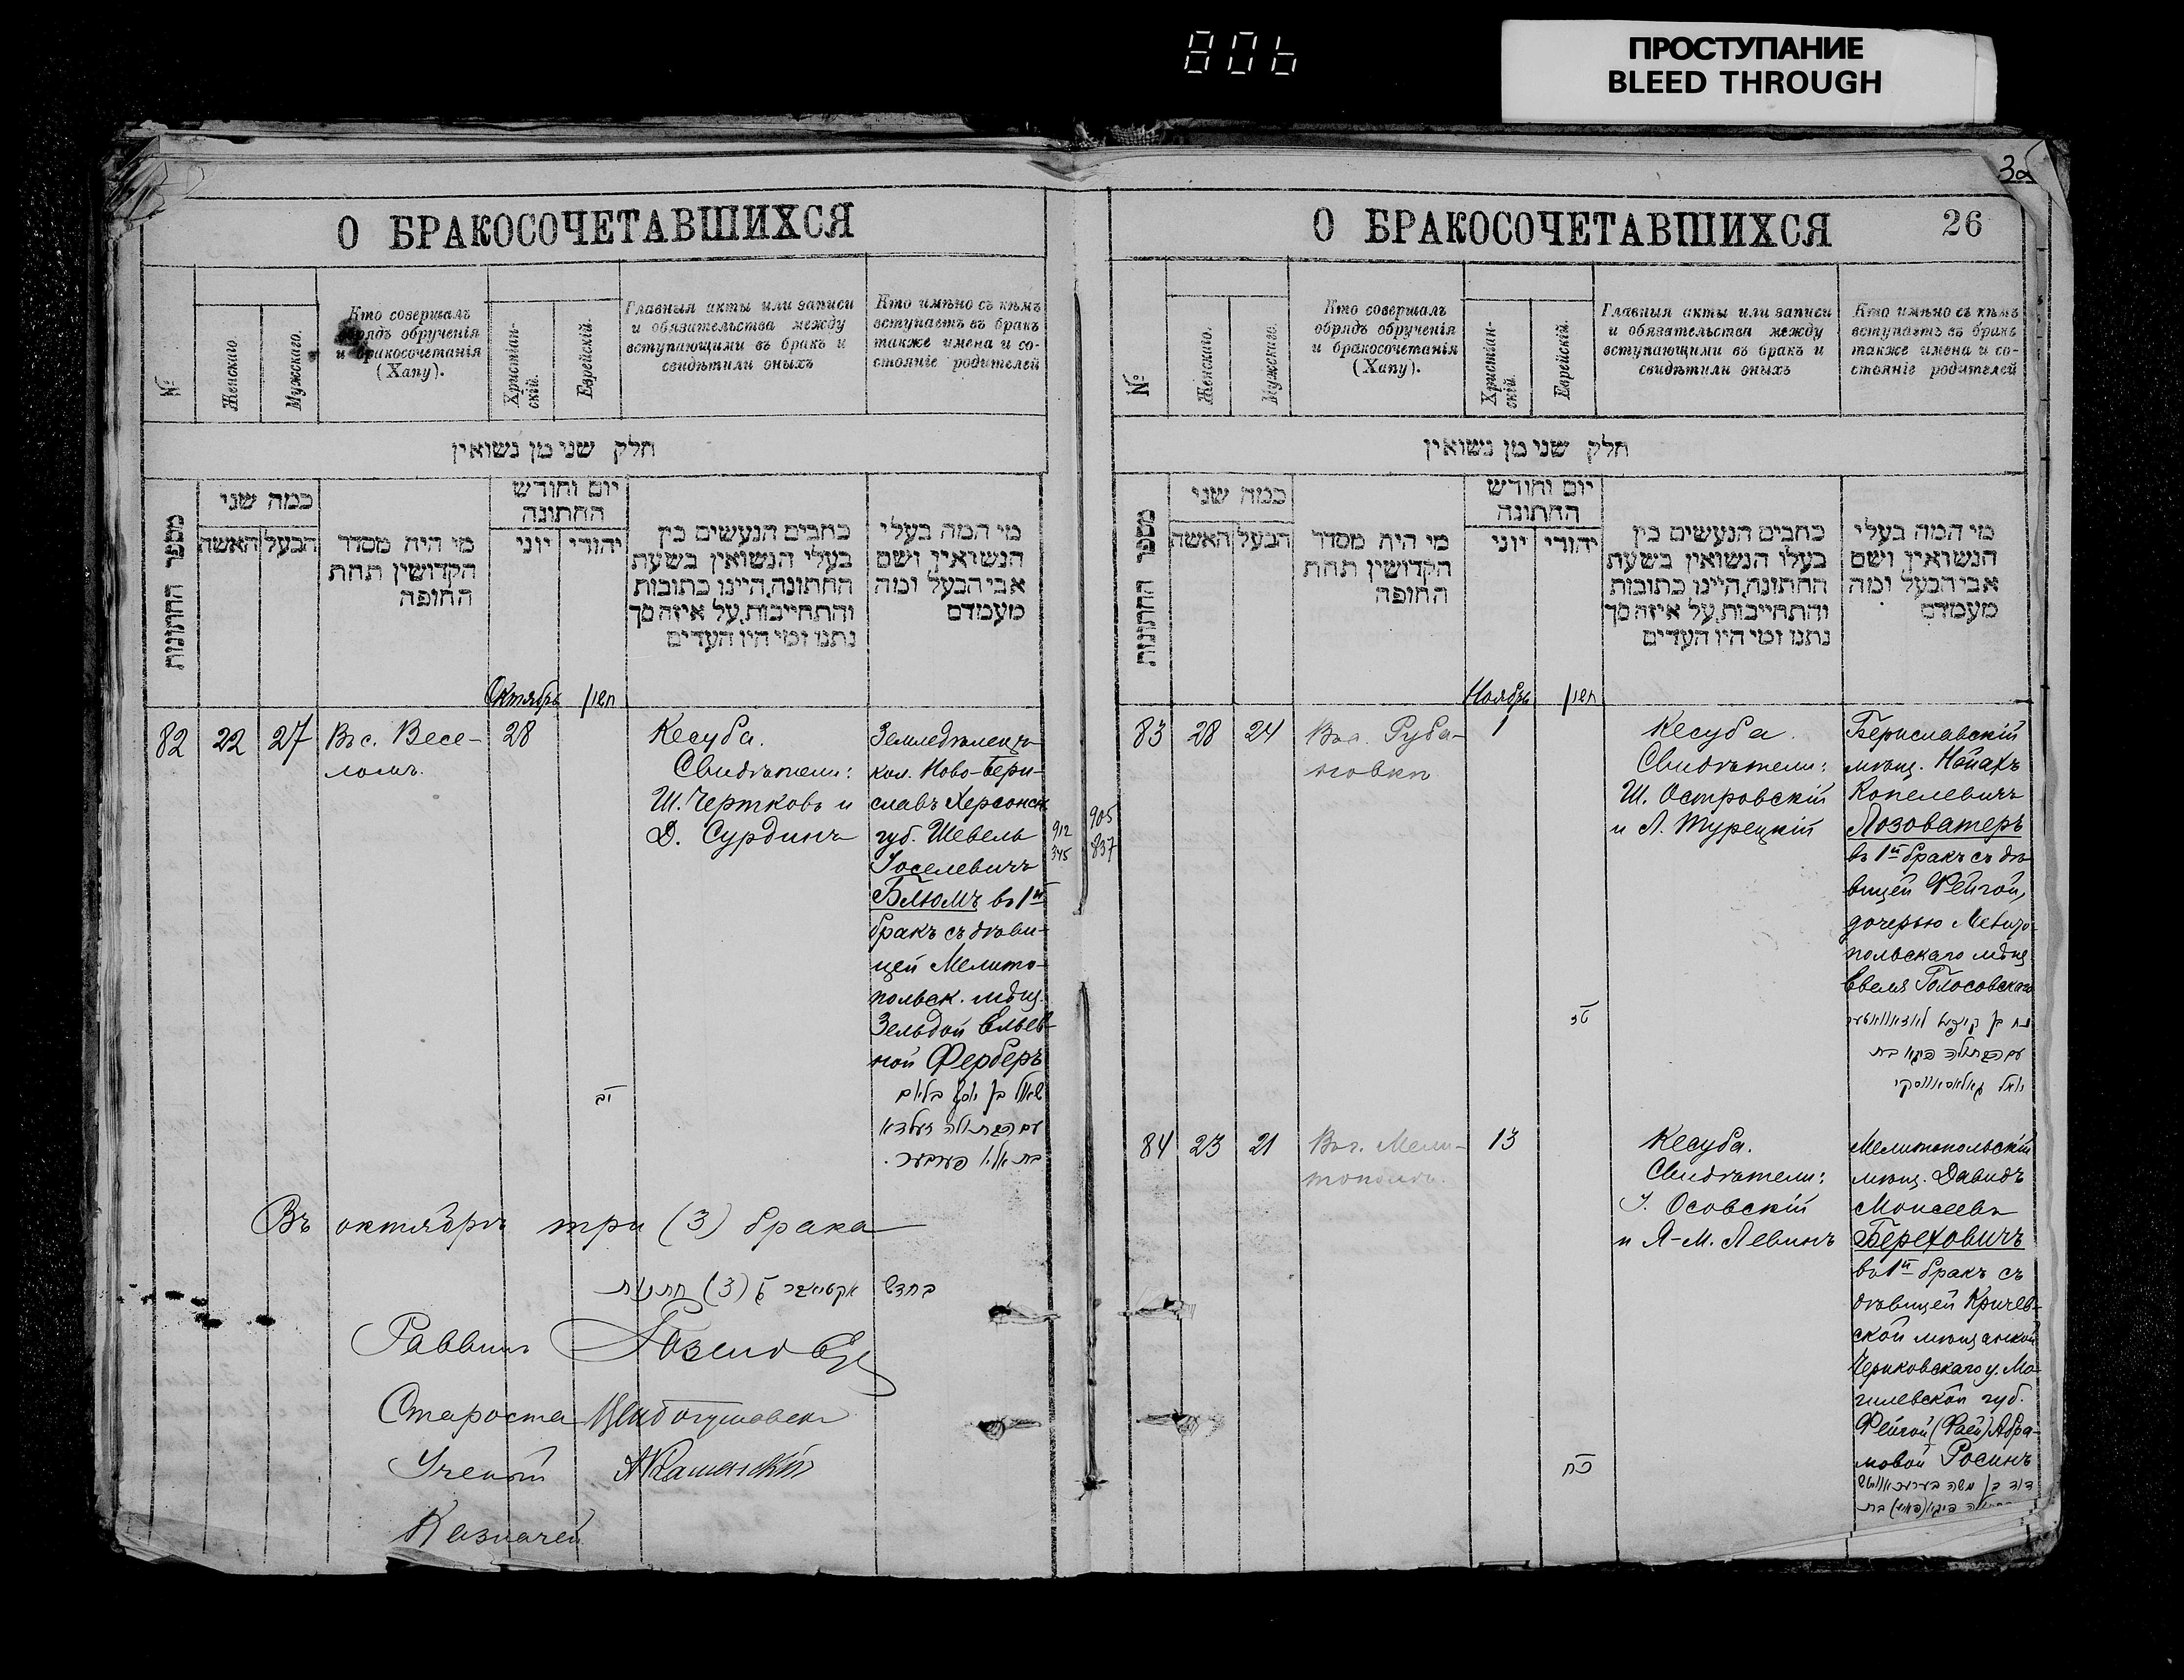 806
ПРОСТУПАНИЕ
BLEED THROUGH
О БРАКОСОЧЕТАВШИХСЯ
№
Женскаго
Мужскаго.
Кто совершалъ
обрядъ обрученія
и бракосочетанія
(Хапу).
Христіан-
скій.
Еврейскій.
Главныя акты или записи
и обязательства между
вступающими въ бракъ и
свидѣтили оныхъ
Кто имѣно съ кѣмъ
вступаетъ въ бракъ
также имена и со-
стояніе родителей
חלק שני מן נשואין
מספר החתונות
כמה שני
האשה
הבעל
מי היה מסדר
הקדושין תחת
החופה
יום וחודש
החתונה
יוני
יהודי
כתבים הנעשים בין
בעלי הנשואין בשעת
החתונה, היינו כתובות
והתחייבות, על איזה סך
נתנו ומי היו העדים
מי המה בעלי
הנשואין ושם
אבי הבעל ומה
מעמדם
Октябрь
חשון
82
22
27
Въ с. Весе-
ломъ.
28
יב
Кесуба.
Свидѣтели:
Ш. Чертковъ и
Д. Сурдинъ
Земледѣлецъ
кол. Ново-Бери-
славъ Херсонск.
губ. Шевель
Іоселевичъ
Блюмъ въ 1й
бракъ съ дѣви-
цей Мелито-
польск. мѣщ.
Зельдой Ельев-
ной Ферберъ
שאול בן יוסף בלום
עם הבתולה זעלדא
בת אלי' פערבער.
912
345
Въ октябрѣ три (3) брака
בחדש אקטיאבר ג (3) חתונות
Раввинъ
Староста
Ученый
Казначей
О БРАКОСОЧЕТАВШИХСЯ
26
№
Женскаго.
Мужскаго.
Кто совершалъ
обрядъ обрученія
и бракосочетанія
(Хапу).
Христіан-
скій.
Еврейскій.
Главныя акты или записи
и обязательства между
вступающими въ бракъ и
свидѣтили оныхъ
Кто имѣно съ кѣмъ
вступаетъ въ бракъ
также имена и со-
стояніе родителей
חלק שני מן נשואין
מספר החתונות
כמה שני
האשה
הבעל
מי היה מסדר
הקדושין תחת
החופה
יום וחודש
החתונה
יוני
יהודי
כתבים הנעשים בין
בעלי הנשואין בשעת
החתונה, היינו כתובות
והתחייבות, על איזה סך
נתנו ומי היו העדים
מי המה בעלי
הנשואין ושם
אבי הבעל ומה
מעמדם
Ноябрь
חשון
905
837
83
28
24
Въ с. Руба-
новкѣ
1
טז
Кесуба.
Свидѣтели:
Ш. Островскій
и Л. Турецкій
Бериславскій
мѣщ. Нойахъ
Копелевичъ
Лозоватеръ
въ 1й бракъ съ дѣ-
вицей Фейгой,
дочерью Мелито-
польскаго мѣщ.
Евеля Голосовскаго
עם הבתולה פיגא בת
84
23
21
Въ г. Мели-
тополѣ.
13
כח
Кесуба.
Свидѣтели:
І. Осовскій
и Я-М. Левинъ
Мелитопольскій
мѣщ. Давидъ
Моисеевъ
Береховичъ
въ 1й бракъ съ
дѣвицей Кричев-
ской мѣщанкой
Чериковскаго у. Мо-
гилевской губ.
Фейгой (Фаей) Абра-
мовой Росинъ